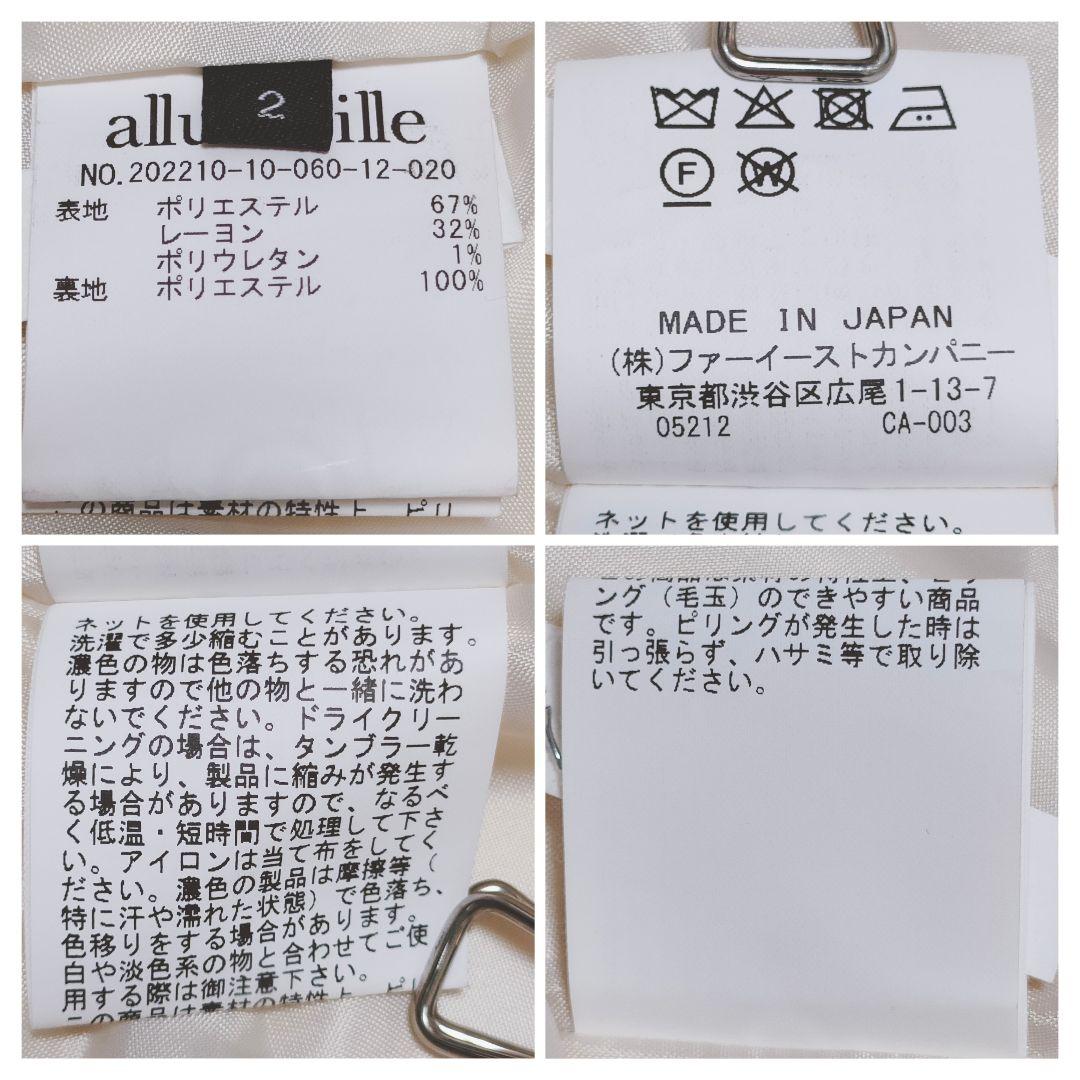 2
ille
NO.202210-10-060-12-020
表地 ポリエステル 67%
レーヨン 32%
ポリウレタン 1%
裏地 ポリエステル 100%
の商品は素材の特性上、ピリ
F
W
MADE IN JAPAN
(株)ファーイーストカンパニー
東京都渋谷区広尾1-13-7
05212 CA-003
ネットを使用してください。
ネットを使用してください。
洗濯で多少縮むことがあります。
濃色の物は色落ちする恐れがあ
りますので他の物と一緒に洗わ
ないでください。ドライクリー
ニングの場合は、タンブラー乾
燥により、製品に縮みが発生す
る場合がありますので、なるべ
く低温・短時間で処理して下さ
い。アイロンは当て布をしてく
ださい。濃色の製品は摩擦等（
特に汗や濡れた状態）で色落ち、
色移りをする場合があります。
白や淡色系の物と合わせてご使
用する際は御注意下さい。
この商品は素材の特性上、ピリ
この商品は素材の特性上、ピリ
ング（毛玉）のできやすい商品
です。ピリングが発生した時は
引っ張らず、ハサミ等で取り除
いてください。